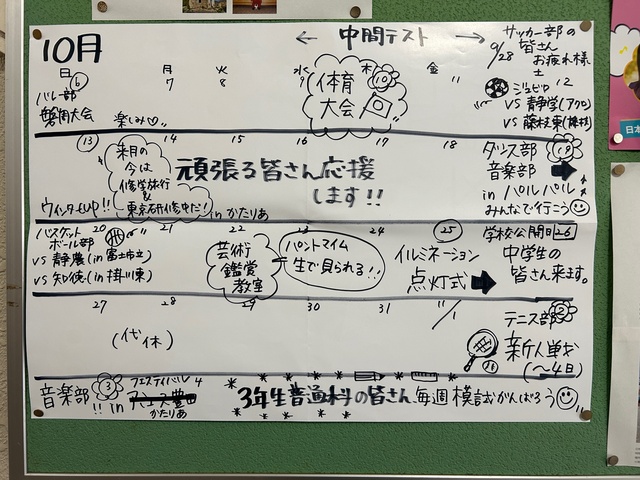 10月
← 中間テスト →
サッカー部の
皆さん
9/28 お疲れ様
日 6
月
7
火
8
水
9
木
10
金
11
土
12
バレー部
磐周大会
楽しみ♡
体育
大会
ジュビロ
VS 静学(アウェ)
VS 藤枝東(藤枝)
13
14
15
16
17
18
19
来月の
今は
修学旅行
&
東京研修中だ!
頑張る皆さん応援
します!!
ウィンターCUP!!
in かたりあ
ダンス部
音楽部
in パルパル
みんなで行こう
20
21
22
23
24
25
学校公開日 26
バスケット
ボール部
VS 静農(in 富士市立)
VS 知徳(in 掛川東)
芸術
鑑賞
教室
パントマイム
生で見られる!!
イルミネーション
点灯式
中学生の
皆さん来ます。
27
28
29
30
31
11/1
2
(代休)
テニス部
新人戦
(〜4日)
音楽部 3
!! in
フェスティバル 4
かたりあ
3年生普通科の皆さん、毎週模試がんばろう